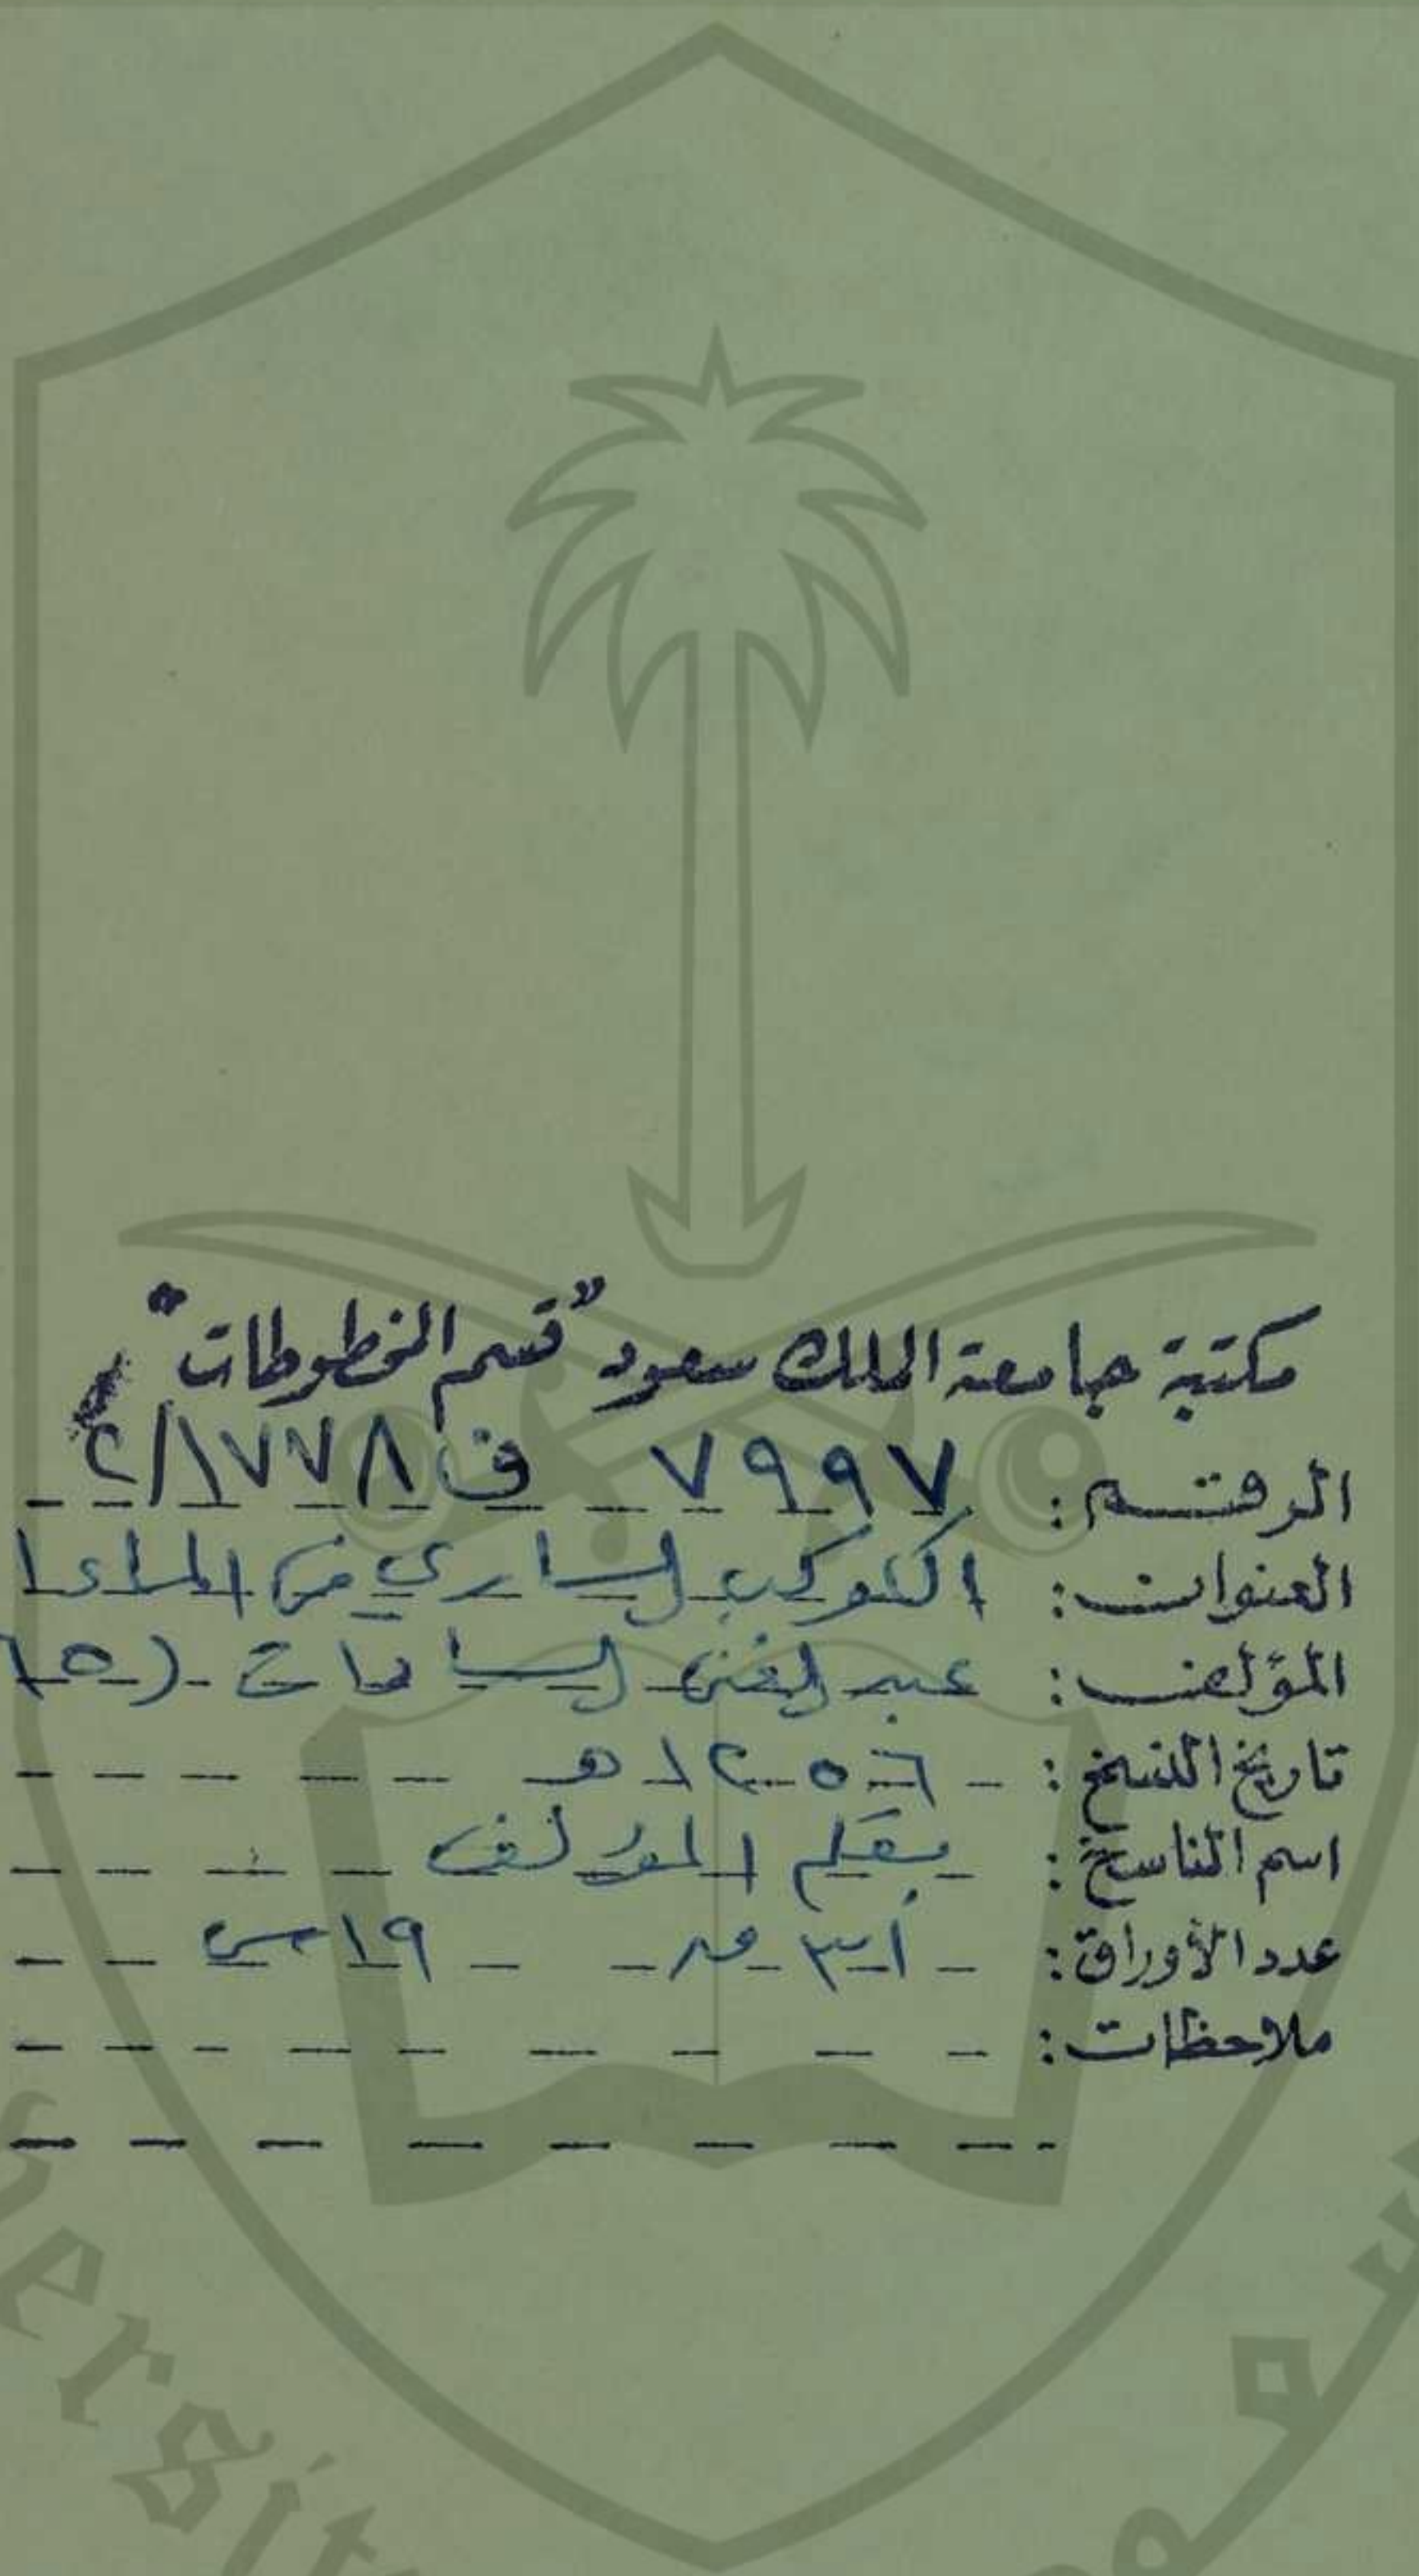 مكتبة جامعة الملك سعود "قسم المخطوطات"
الرقم: ٧٩٩٧ ف ١٧٧٨/٢
العنوان: الكوكب الساري في
المؤلف: عبد الغني السادات
تاريخ النسخ: ١٢٥٦ هـ
اسم الناسخ: بقلم المؤلف
عدد الأوراق: ٣١ ١٩ س
ملاحظات:
ersit